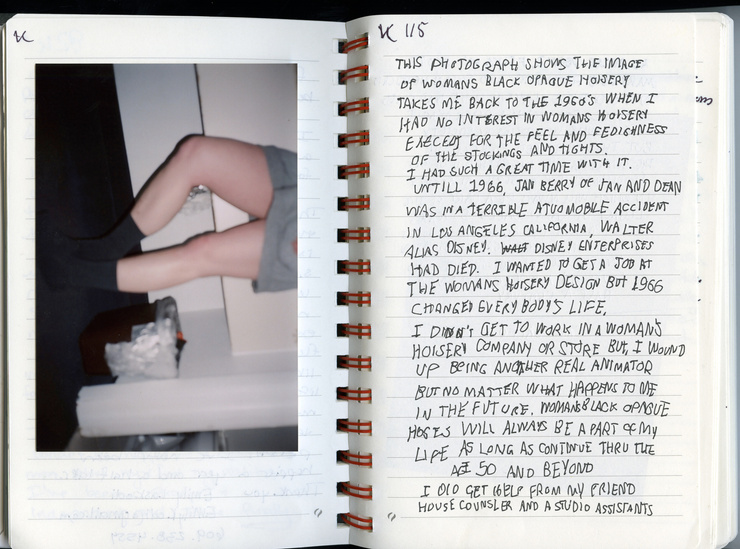 K
K 115
THIS PHOTOGRAPH SHOWS THE IMAGE
OF WOMANS BLACK OPAQUE HOISERY
TAKES ME BACK TO THE 1960'S WHEN I
HAD NO INTEREST IN WOMANS HOISERY
EXECEST FOR THE FEEL AND FEDIGHNESS
OF THE STOCKINGS AND TIGHTS.
I HAD SUCH A GREAT TIME WITH IT.
UNTILL 1966, JAN BERRY OF JAN AND DEAN
WAS IN A TERRIBLE ATUOMOBILE ACCIDENT
IN LOS ANGELES CALIFORNIA, WALTER
ALIAS DISNEY. WALT DISNEY ENTERPRISES
HAD DIED. I WANTED TO GET A JOB AT
THE WOMANS HOISERY DESIGN BUT 1966
CHANGED EVERYBODY'S LIFE,
I DIDN'T GET TO WORK IN A WOMAN'S
HOISERY COMPANY OR STORE BUT, I WOUND
UP BEING ANOTHER REAL ANIMATOR
BUT NO MATTER WHAT HAPPENS TO ME
IN THE FUTURE, WOMANS BLACK OPAQUE
HOSES WILL ALWAYS BE A PART OF MY
LIFE AS LONG AS CONTINUE THRU THE
AGE 50 AND BEYOND
I DID GET HELP FROM MY FRIEND
HOUSE COUNSLER AND A STUDIO ASSISTANTS